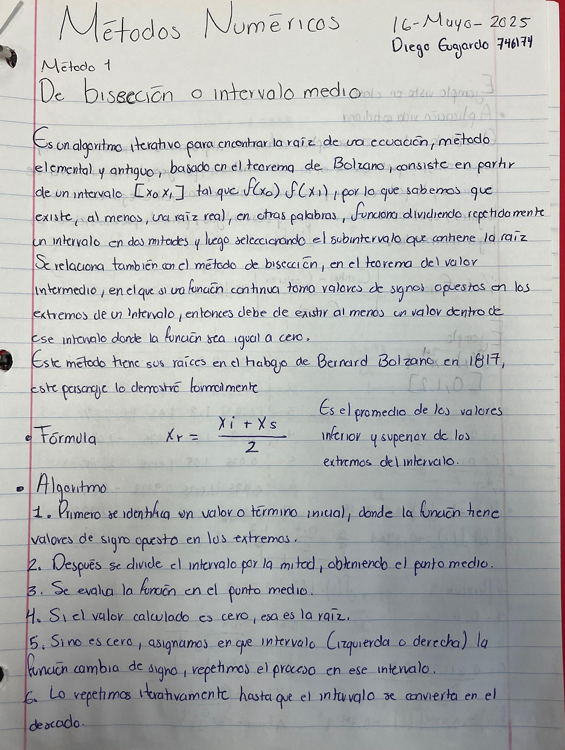 Métodos Numéricos
16-Mayo-2025
Diego Gugardo 746174
Método 1
De bisección o intervalo medio
Es un algoritmo iterativo para encontrar la raíz de una ecuación, método
elemental y antiguo, basado en el teorema de Bolzano, consiste en partir
de un intervalo [x0 x1] tal que f(x0) f(x1), por lo que sabemos que
existe, al menos, una raíz real, en otras palabras, funciona dividiendo repetidamente
un intervalo en dos mitades y luego seleccionando el subintervalo que contiene la raíz
Se relaciona también con el método de bisección, en el teorema del valor
intermedio, en el que si una función continua toma valores de signos opuestos en los
extremos de un intervalo, entonces debe de existir al menos un valor dentro de
ese intervalo donde la función sea igual a cero.
Este método tiene sus raíces en el trabajo de Bernard Bolzano en 1817,
este personaje lo demostró formalmente
• Fórmula
Xr = Xi + Xs / 2
Es el promedio de los valores
inferior y superior de los
extremos del intervalo.
• Algoritmo
1. Primero se identifica un valor o término inicial, donde la función tiene
valores de signo opuesto en los extremos.
2. Después se divide el intervalo por la mitad, obteniendo el punto medio.
3. Se evalua la función en el punto medio.
4. Si el valor calculado es cero, esa es la raíz.
5. Si no es cero, asignamos en que intervalo (izquierda o derecha) la
función cambia de signo, repetimos el proceso en ese intervalo.
6. Lo repetimos iterativamente hasta que el intervalo se convierta en el
deseado.